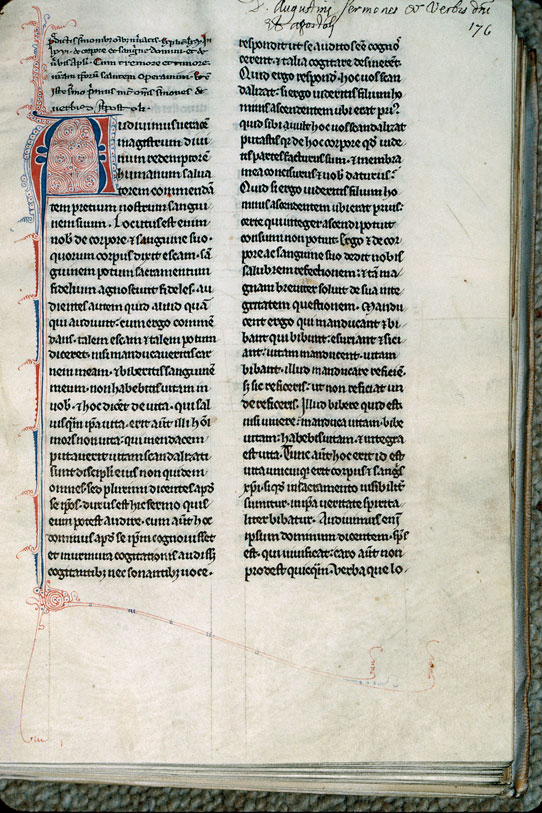 S. Augustini sermones de Verbis dñi
et apostoli
176
uerbi dñi
Audiuimus ueracē
magistrum diui
num redemptorē
humanum salua
torem cōmendan
tem pretium nostrum sangui
nem suum. Locutus est enim
nob̄ de corpore ⁊ sanguine suo.
quorum corpus dixit escam. sā
guinem potum sacramentum
fidelium agnoscunt fideles. au
dientes autem quid aliud quā
qui audiunt. cum ergo commē
dans. talem escam ⁊ talem potum
diceret. nisi manducaueritis car
nem meam. ⁊ biberitis sanguinē
meum. non habebitis uitam in
uob̄. ⁊ hoc diceret de uita. qui
ipsa uita. erit aūt illi
mors non uita. qui mendacem
putauerit uitam scandalizati
sunt discipli eius non quidem
omnes. sed plurimi dicentes apđ
se ip̄os. durus est hic sermo quis
eum potest audire. cum aūt hoc
dominus apđ se ip̄m cognouisset
et murmura cogitationis audiss̄
cogitantib; nec sonantib; uoce.
respondit ut se auditos eē cogno
cerent. ⁊ talia cogitare desinerēt.
Quid ergo respond̄. hoc uos scan
dalizat. si ergo uideritis filium ho
minis ascendentem ubi erat pri?
quid sibi uult hoc uos scandalizat
putastis qđ de hoc corpore qđ uide
tis partes facturus sum. ⁊ membra
mea concisurus ⁊ uob̄ daturus?
Quid si ergo uideritis filium ho
minis ascendentem ubi erat prius.
certe qui integer ascendi potuit.
consumi non potuit. Ergo ⁊ de cor
pore ac sanguine suo dedit nobis
salubrem refectionem. ⁊ tā ma
gnam breuiter soluit de sua inte
gritatem questionem. Mandu
cent ergo qui manducant ⁊ bi
bant qui bibunt. esuriant ⁊ siti
ant. uitam manducent. uitam
bibant. illud manducare refici ē.
sic reficeris. ut non deficiat un
de reficeris. Illud bibere quid est.
nisi uiuere. manduca uitam. bibe
uitam. habebis uitam. ⁊ integra
est uita. Tunc aūt hoc erit id est
uita unicuiq; erit corpus ⁊ sangs
xpi. si qđ in sacramento uisibilit̄
sumitur. in ipsa ueritate spirita
liter bibatur. Audiuimus enī
ipsum dominum dicentem. sp̄s
est. qui uiuificat. caro aūt non
prodest quicq̄m. Verba que lo-